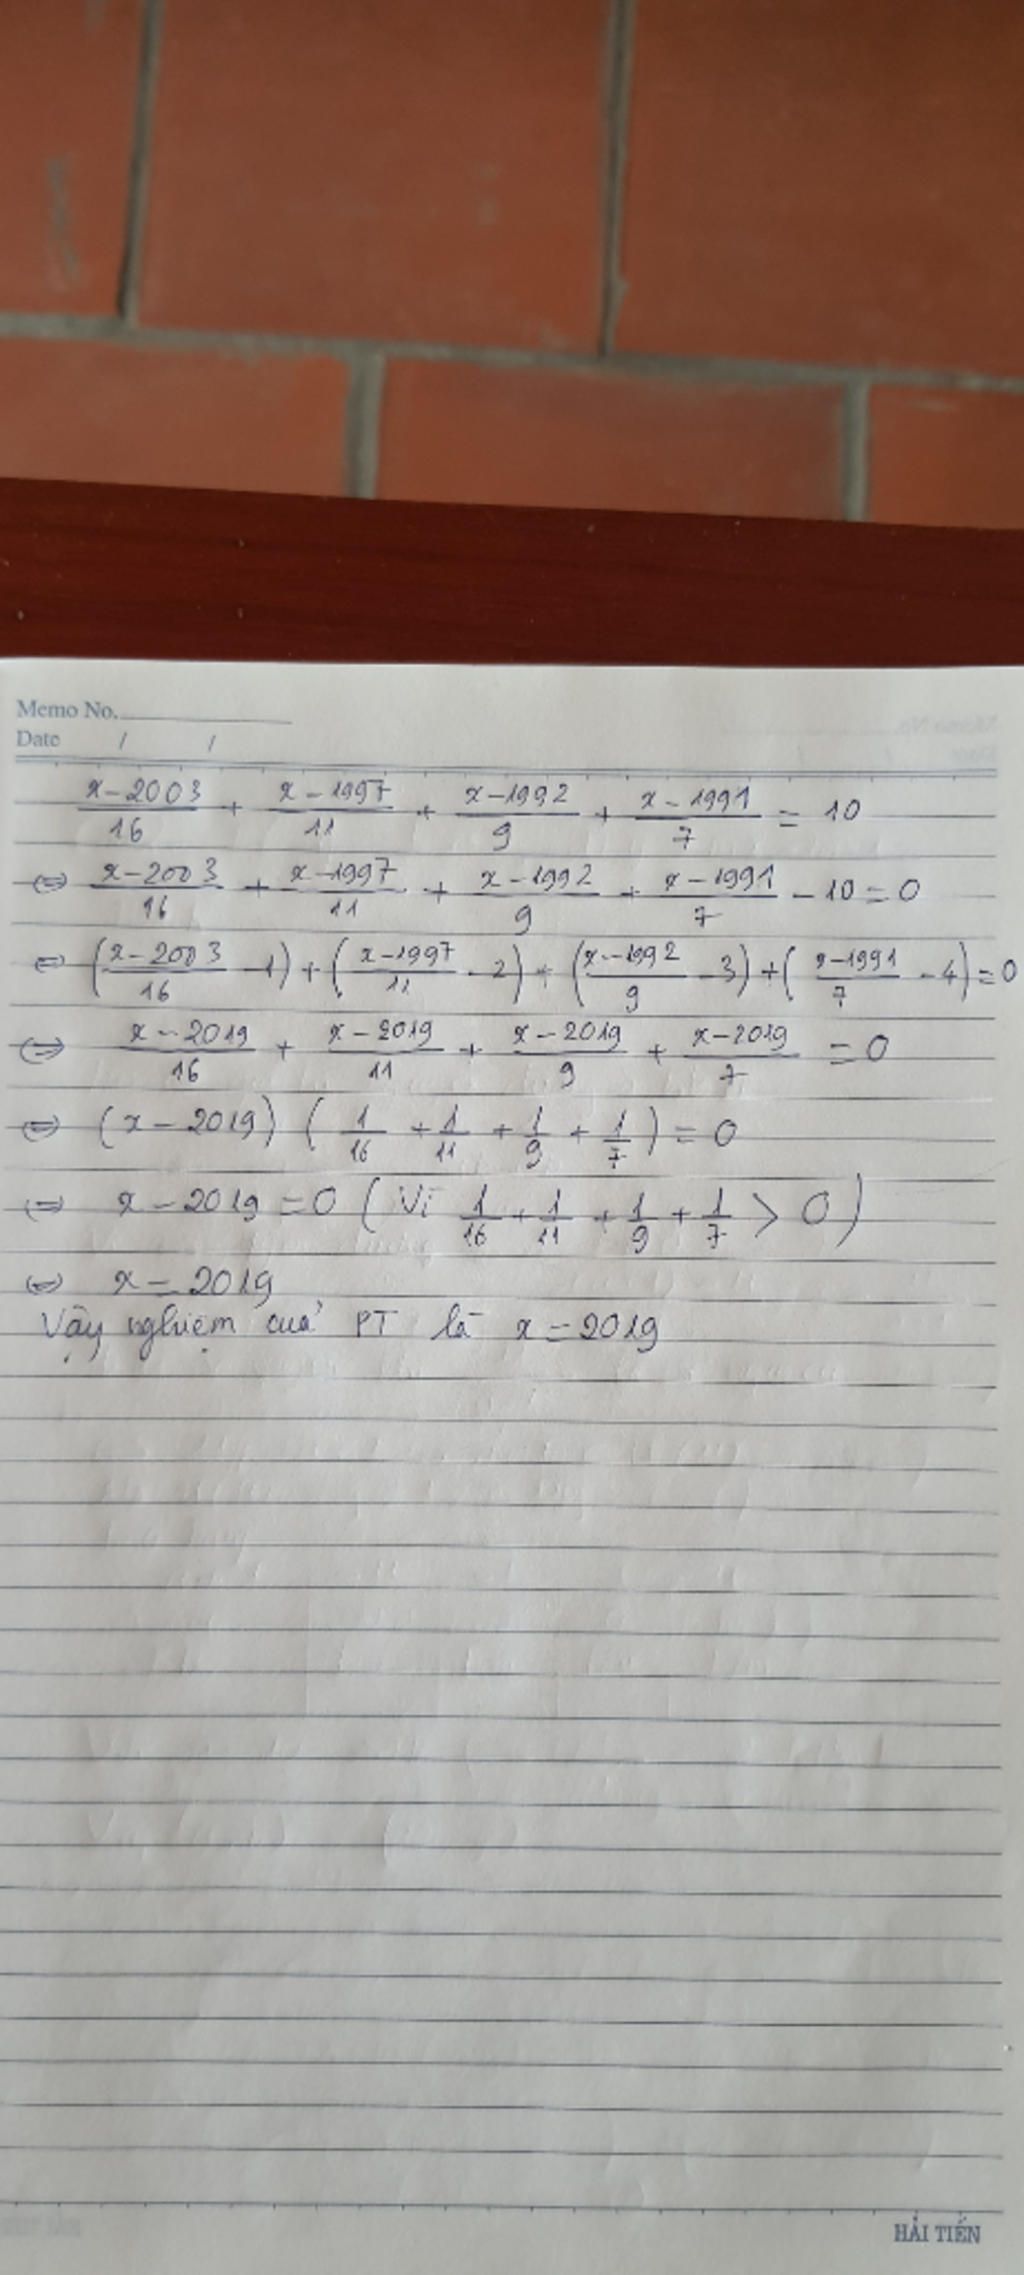 Memo No.
Date / /
x-2003/16 + x-1997/11 + x-1992/9 + x-1991/7 = 10
⇔ x-2003/16 + x-1997/11 + x-1992/9 + x-1991/7 - 10 = 0
⇔ (x-2003/16 - 1) + (x-1997/11 - 2) + (x-1992/9 - 3) + (x-1991/7 - 4) = 0
⇔ x-2019/16 + x-2019/11 + x-2019/9 + x-2019/7 = 0
⇔ (x-2019) (1/16 + 1/11 + 1/9 + 1/7) = 0
⇔ x-2019 = 0 (Vì 1/16 + 1/11 + 1/9 + 1/7 > 0)
⇔ x = 2019
Vậy nghiệm của PT là x = 2019
HẢI TIẾN